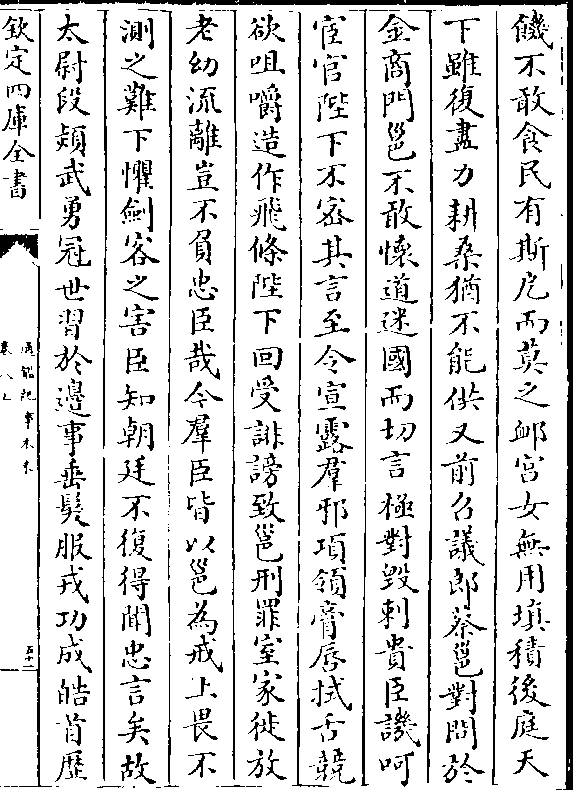 饑不敢食民有斯厄而莫之卹宫女無用填積後庭天
下雖復盡力耕桑猶不能供又前召議郎蔡邕對問於
金商門邕不敢懷道迷國而切言極對毀刺貴臣譏呵
宦官陛下不宻其言至令宣露羣邪項領膏唇拭舌競
欲咀嚼造作飛條陛下回受誹謗致邕刑罪室家徙放
老幼流離豈不負忠臣哉今羣臣皆以邕為戒上畏不
測之難下懼劍客之害臣知朝廷不復得聞忠言矣故
太尉段熲武勇冠世習於邊事垂髮服戎功成皓首歴
欽定四庫全書
通鑑紀事本末
卷八上
五十二